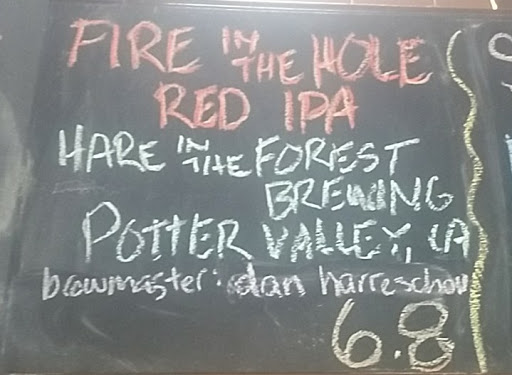 FIRE IN THE HOLE
RED IPA
HARE IN THE FOREST
BREWING
POTTER VALLEY, CA
browmaster: dan harreschou
6.8